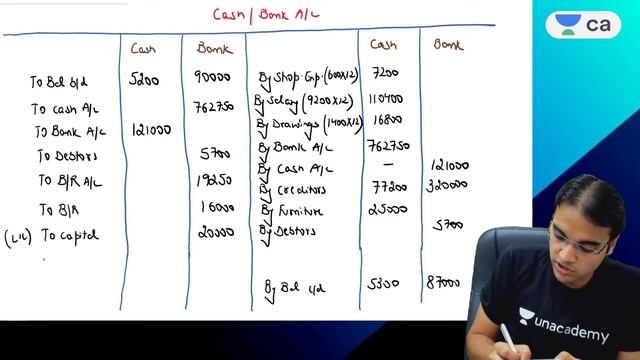 Cash/Bank A/c
Cash Bank Cash Bank
To Bal b/d 5200 90000 By Shop. Exp. (600x12) 7200
To Cash A/c 762750 By Salary (9200x12) 110400
To Bank A/c 121000 By Drawings (1400x12) 16800
To Debtors 5700 By Bank A/c 762750
To B/R A/c 19250 By Cash A/c – 121000
To B/R 16000 By Creditors 77200 320000
(LIC) To Capital 20000 By Furniture 25000
By Debtors 5700
By Bal c/d 5300 87000
ca
unacademy